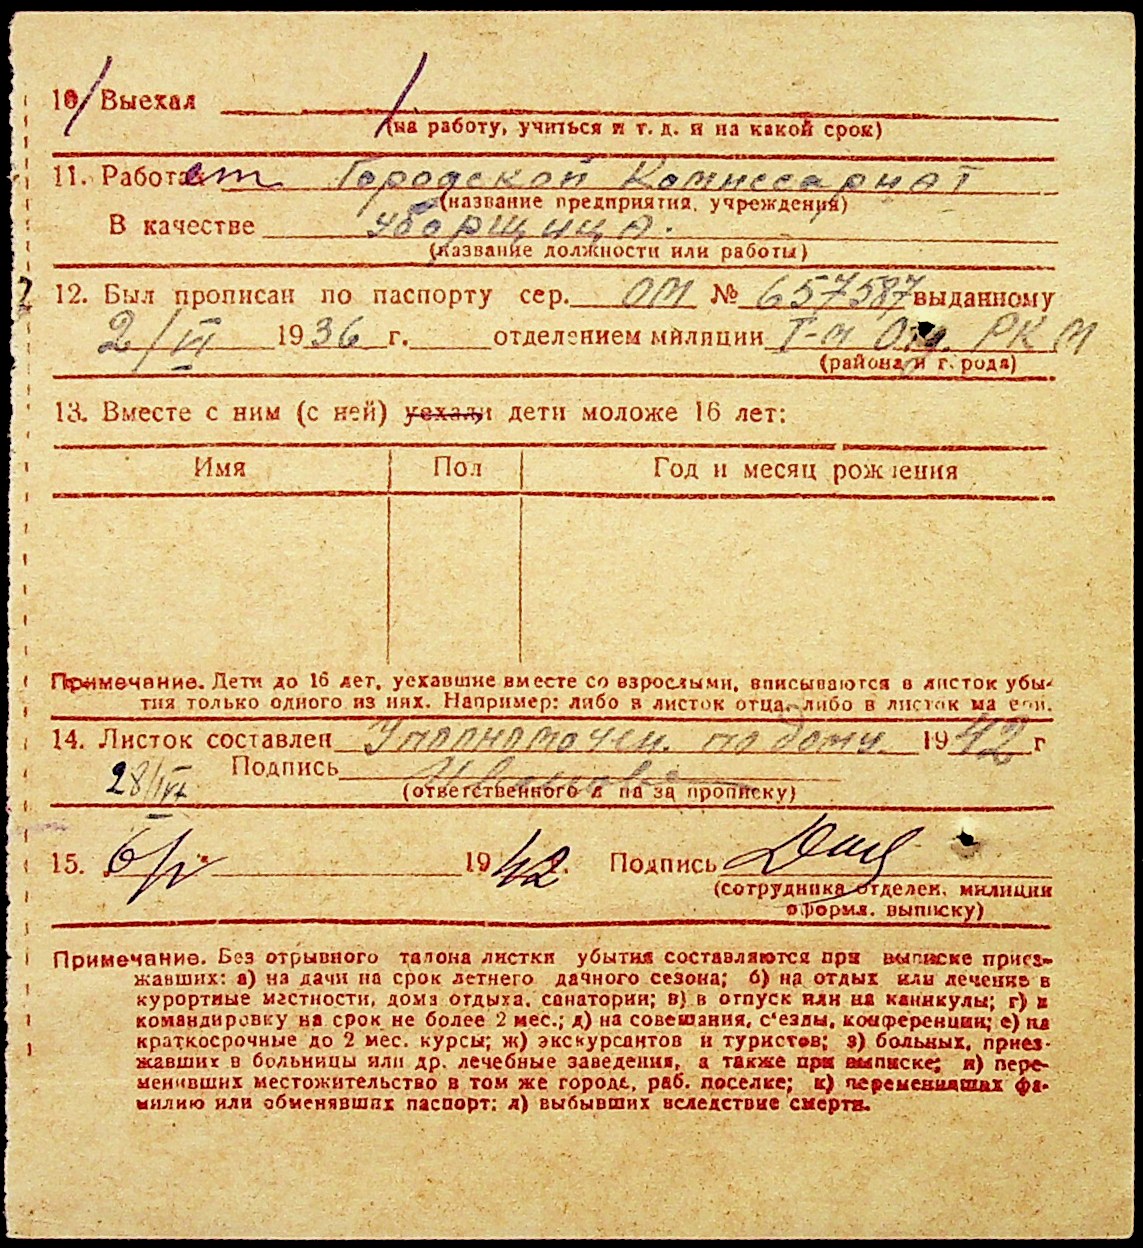 10 Выехал
(на работу, учиться и т. д. и на какой срок)
11. Работает Городской Комиссариат
(название предприятия, учреждения)
В качестве уборщица.
(название должности или работы)
12. Был прописан по паспорту сер. ОМ № 657587, выданному
2/VI 1936 г. отделением милиции I-м От. РКМ
(района и города)
13. Вместе с ним (с ней) уехали дети моложе 16 лет:
Имя Пол Год и месяц рождения
Примечание. Дети до 16 лет, уехавшие вместе со взрослыми, вписываются в листок убы-
тия только одного из них. Например: либо в листок отца, либо в листок матери.
14. Листок составлен Уполномочен. по дому. 1942 г
28/IV Подпись Иванова
(ответственного л па за прописку)
15. 6/V 1942. Подпись
(сотрудника отделен. милиции
оформл. выписку)
Примечание. Без отрывного талона листки убытия составляются при выписке приез-
жавших: а) на дачи на срок летнего дачного сезона; б) на отдых или лечение в
курортные местности, дома отдыха, санатории; в) в отпуск или на каникулы; г) в
командировку на срок не более 2 мес.; д) на совещания, с'езды, конференции; е) на
краткосрочные до 2 мес. курсы; ж) экскурсантов и туристов; з) больных, приез-
жавших в больницы или др. лечебные заведения, а также при выписке; и) пере-
менивших местожительство в том же городе, раб. поселке; к) переменивших фа-
милию или обменявших паспорт; л) выбывших вследствие смерти.